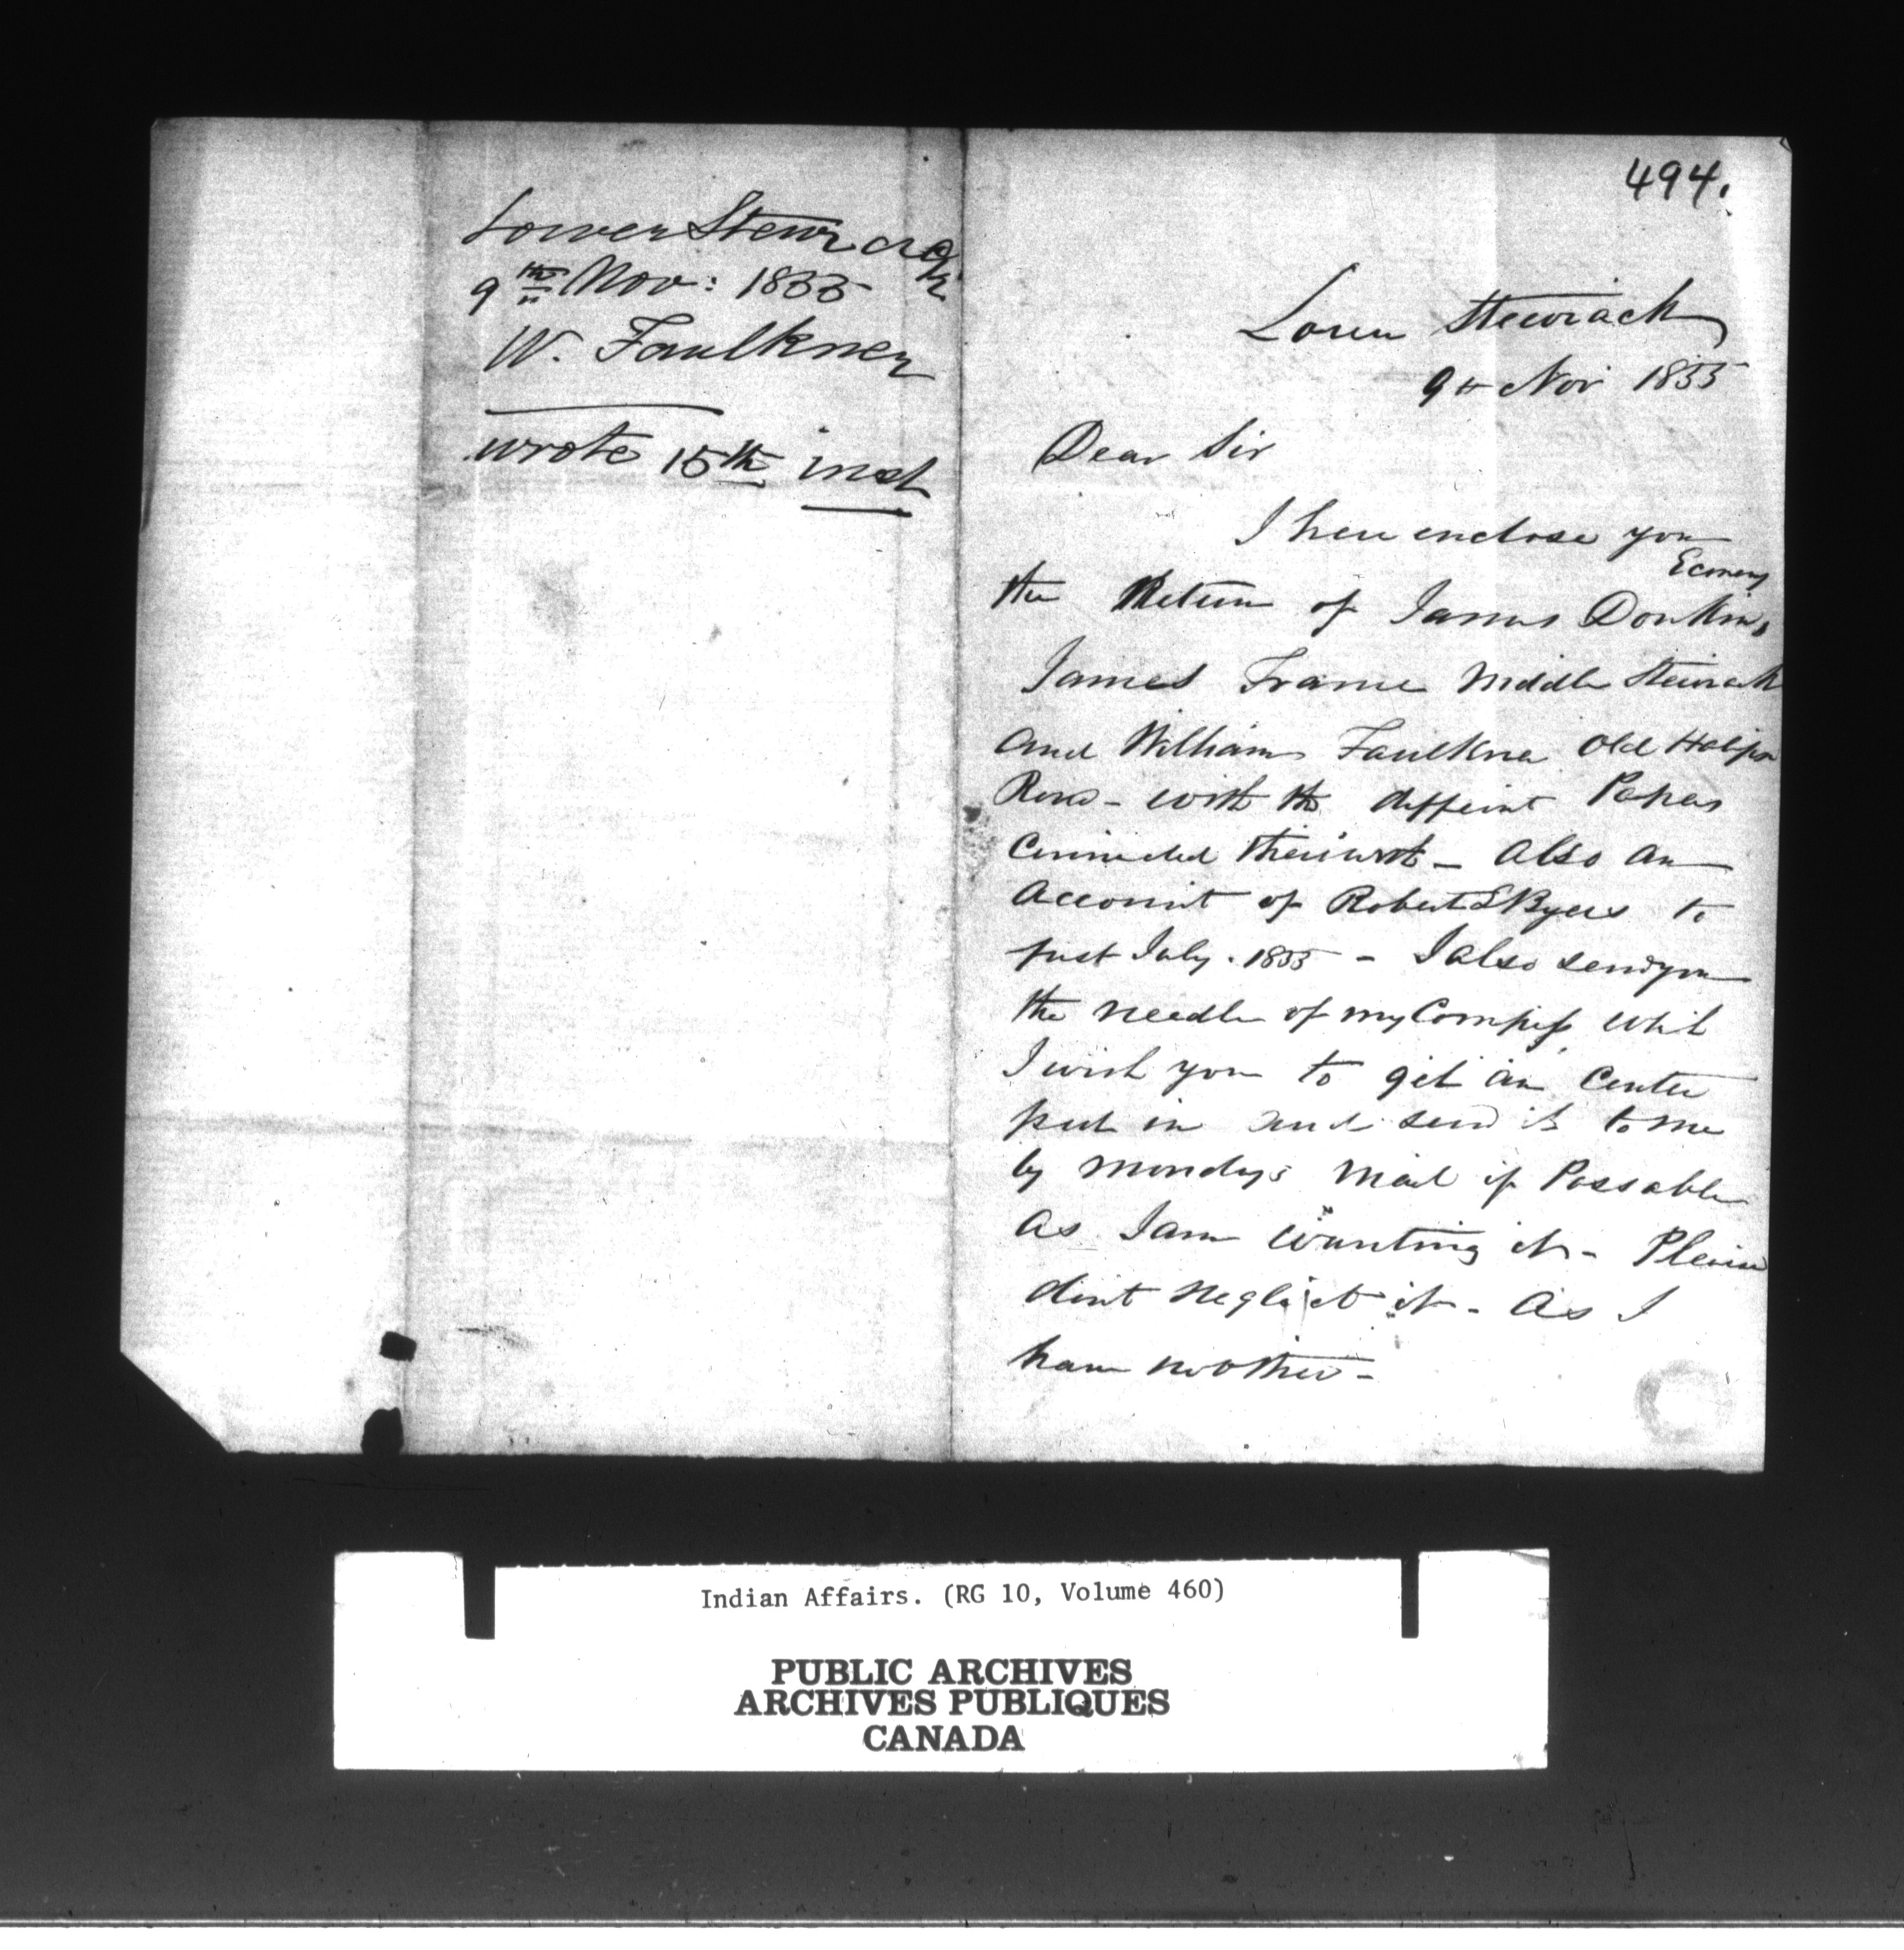 Lower Stewiack
9th Nov: 1855
W. Faulkner
wrote 15th inst
494.
Lower Stewiack
9th Nov 1855
Dear Sir
I here enclose you
Economy
the Return of James Donkin,
James Frame Middle Stewiack
and William Faulkner Old Halifax
Road - with the different Papers
Connected therewith - Also an
Account of Robert S Byers to
first July. 1855 - I also send you
the needle of my Compass which
I wish you to get an Center
put in and send it to me
by Mondys Mail if Possable
As I am wanting it - Please
dont neglect it - As I
have no other -
Indian Affairs. (RG 10, Volume 460)
PUBLIC ARCHIVES
ARCHIVES PUBLIQUES
CANADA